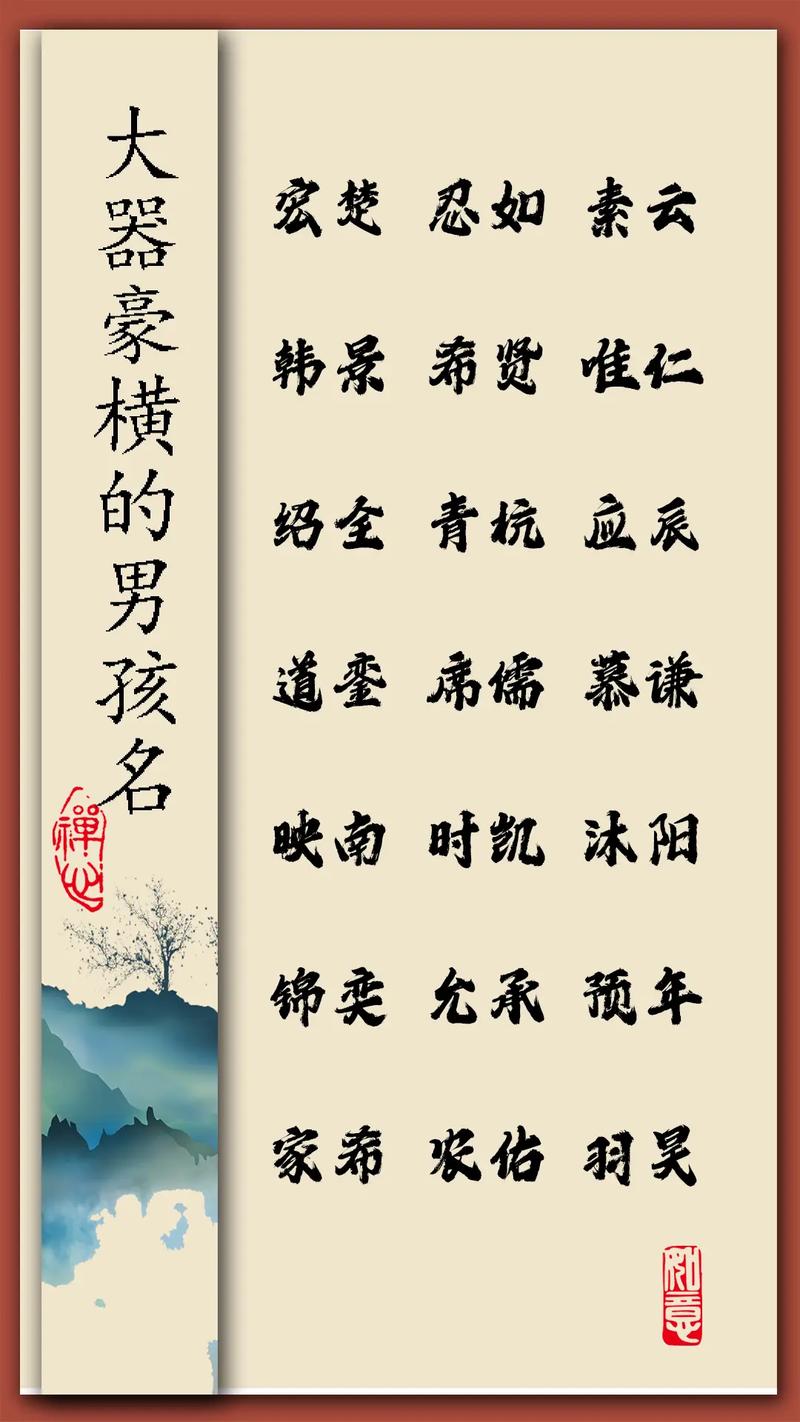 大器豪横的男孩名
禅心
宏楚 忍如 素云
韩景 希贤 唯仁
绍全 青杭 应辰
道銮 席儒 慕谦
映南 时凯 沐阳
锦奕 允承 预年
家希 农佑 羽昊
如意